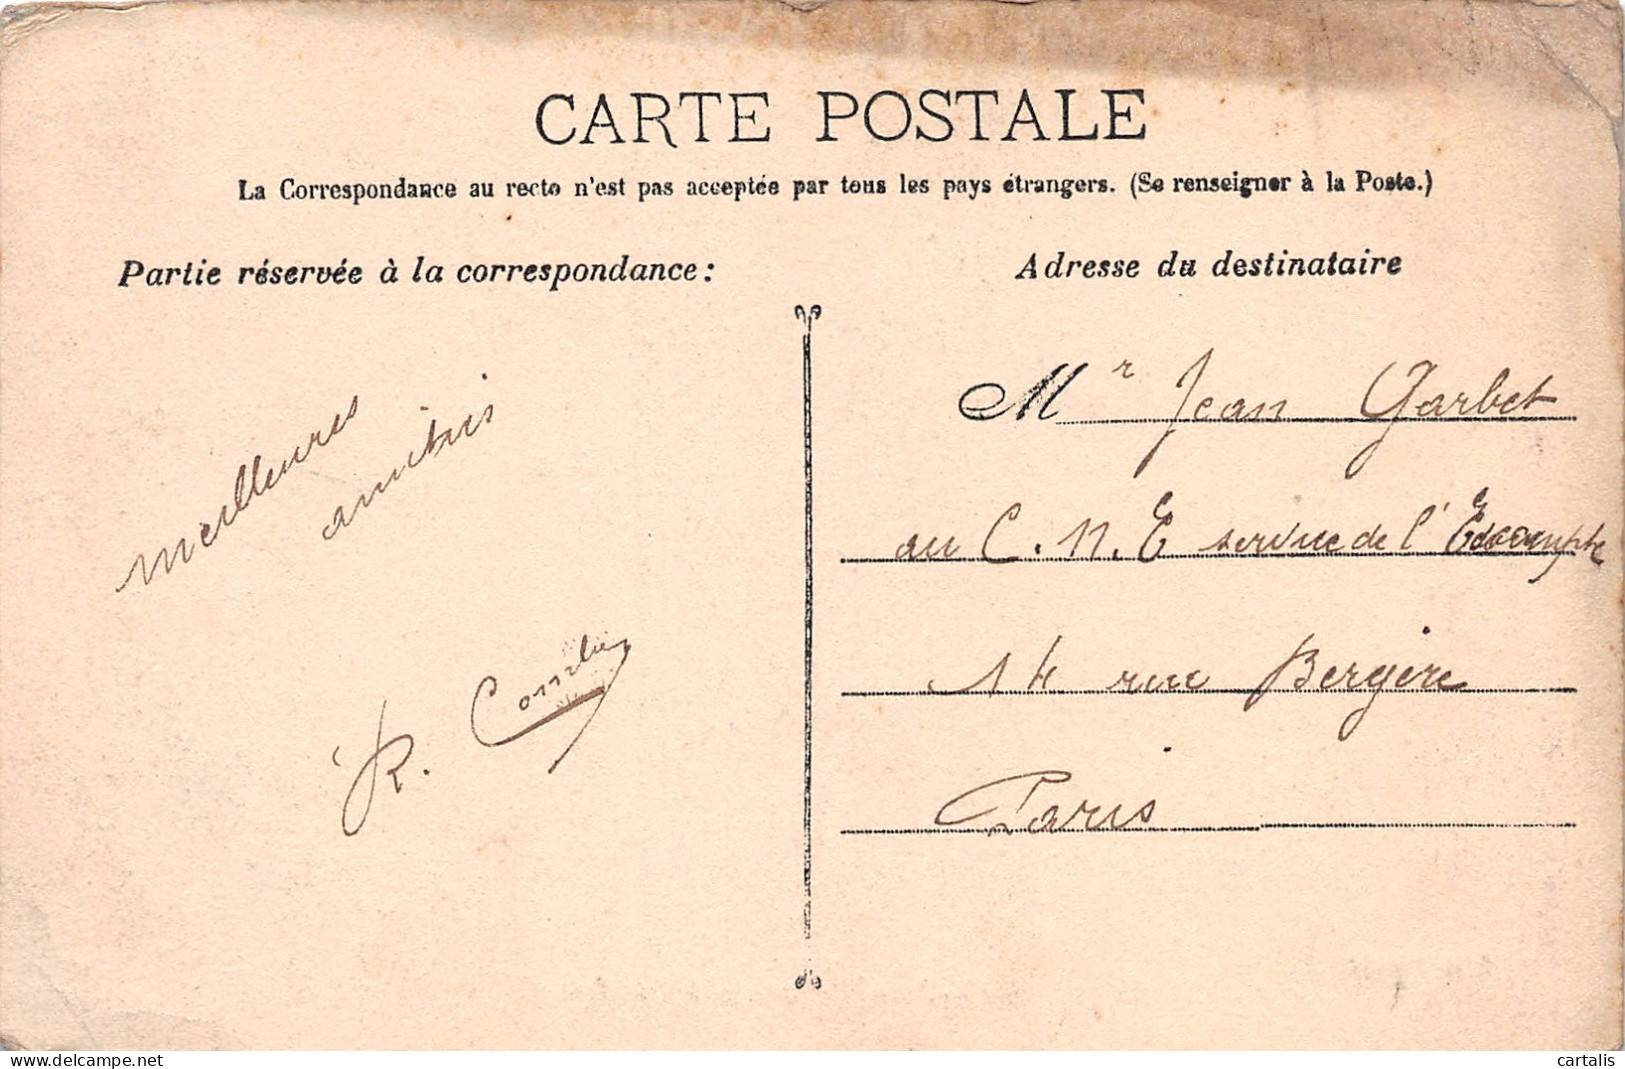 CARTE POSTALE
La Correspondance au recto n'est pas acceptée par tous les pays étrangers. (Se renseigner à la Poste.)
Partie réservée à la correspondance :
meilleures
amitiés
R.
Adresse du destinataire
Mr Jean Garbet
au C. N. E service de l'Escompte
14 rue Bergère
Paris
delcampe.net
cartalis